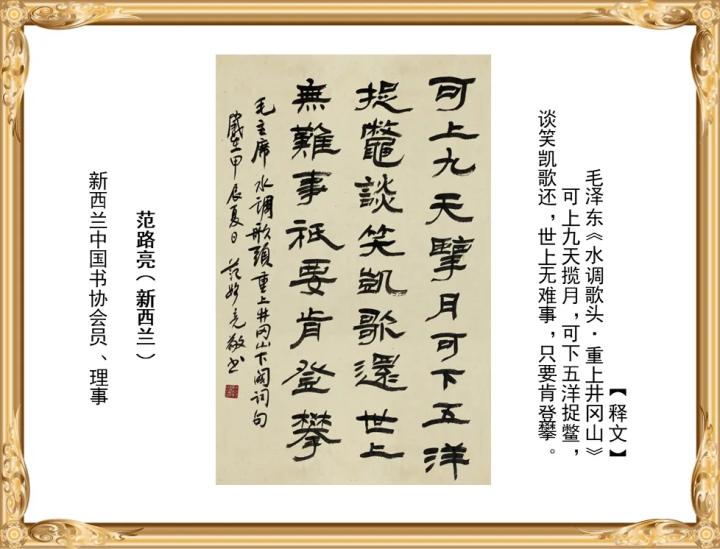 【释文】
毛泽东《水调歌头·重上井冈山》
可上九天揽月，可下五洋捉鳖，
谈笑凯歌还，世上无难事，只要肯登攀。
可上九天擥月可下五洋
捉鼈談笑凱歌還世上
無難事祇要肯登攀
毛主席水调歌頭重上井冈山下阕词句
歲在甲辰夏日范路亮敬书
范路亮（新西兰）
新西兰中国书协会员、理事